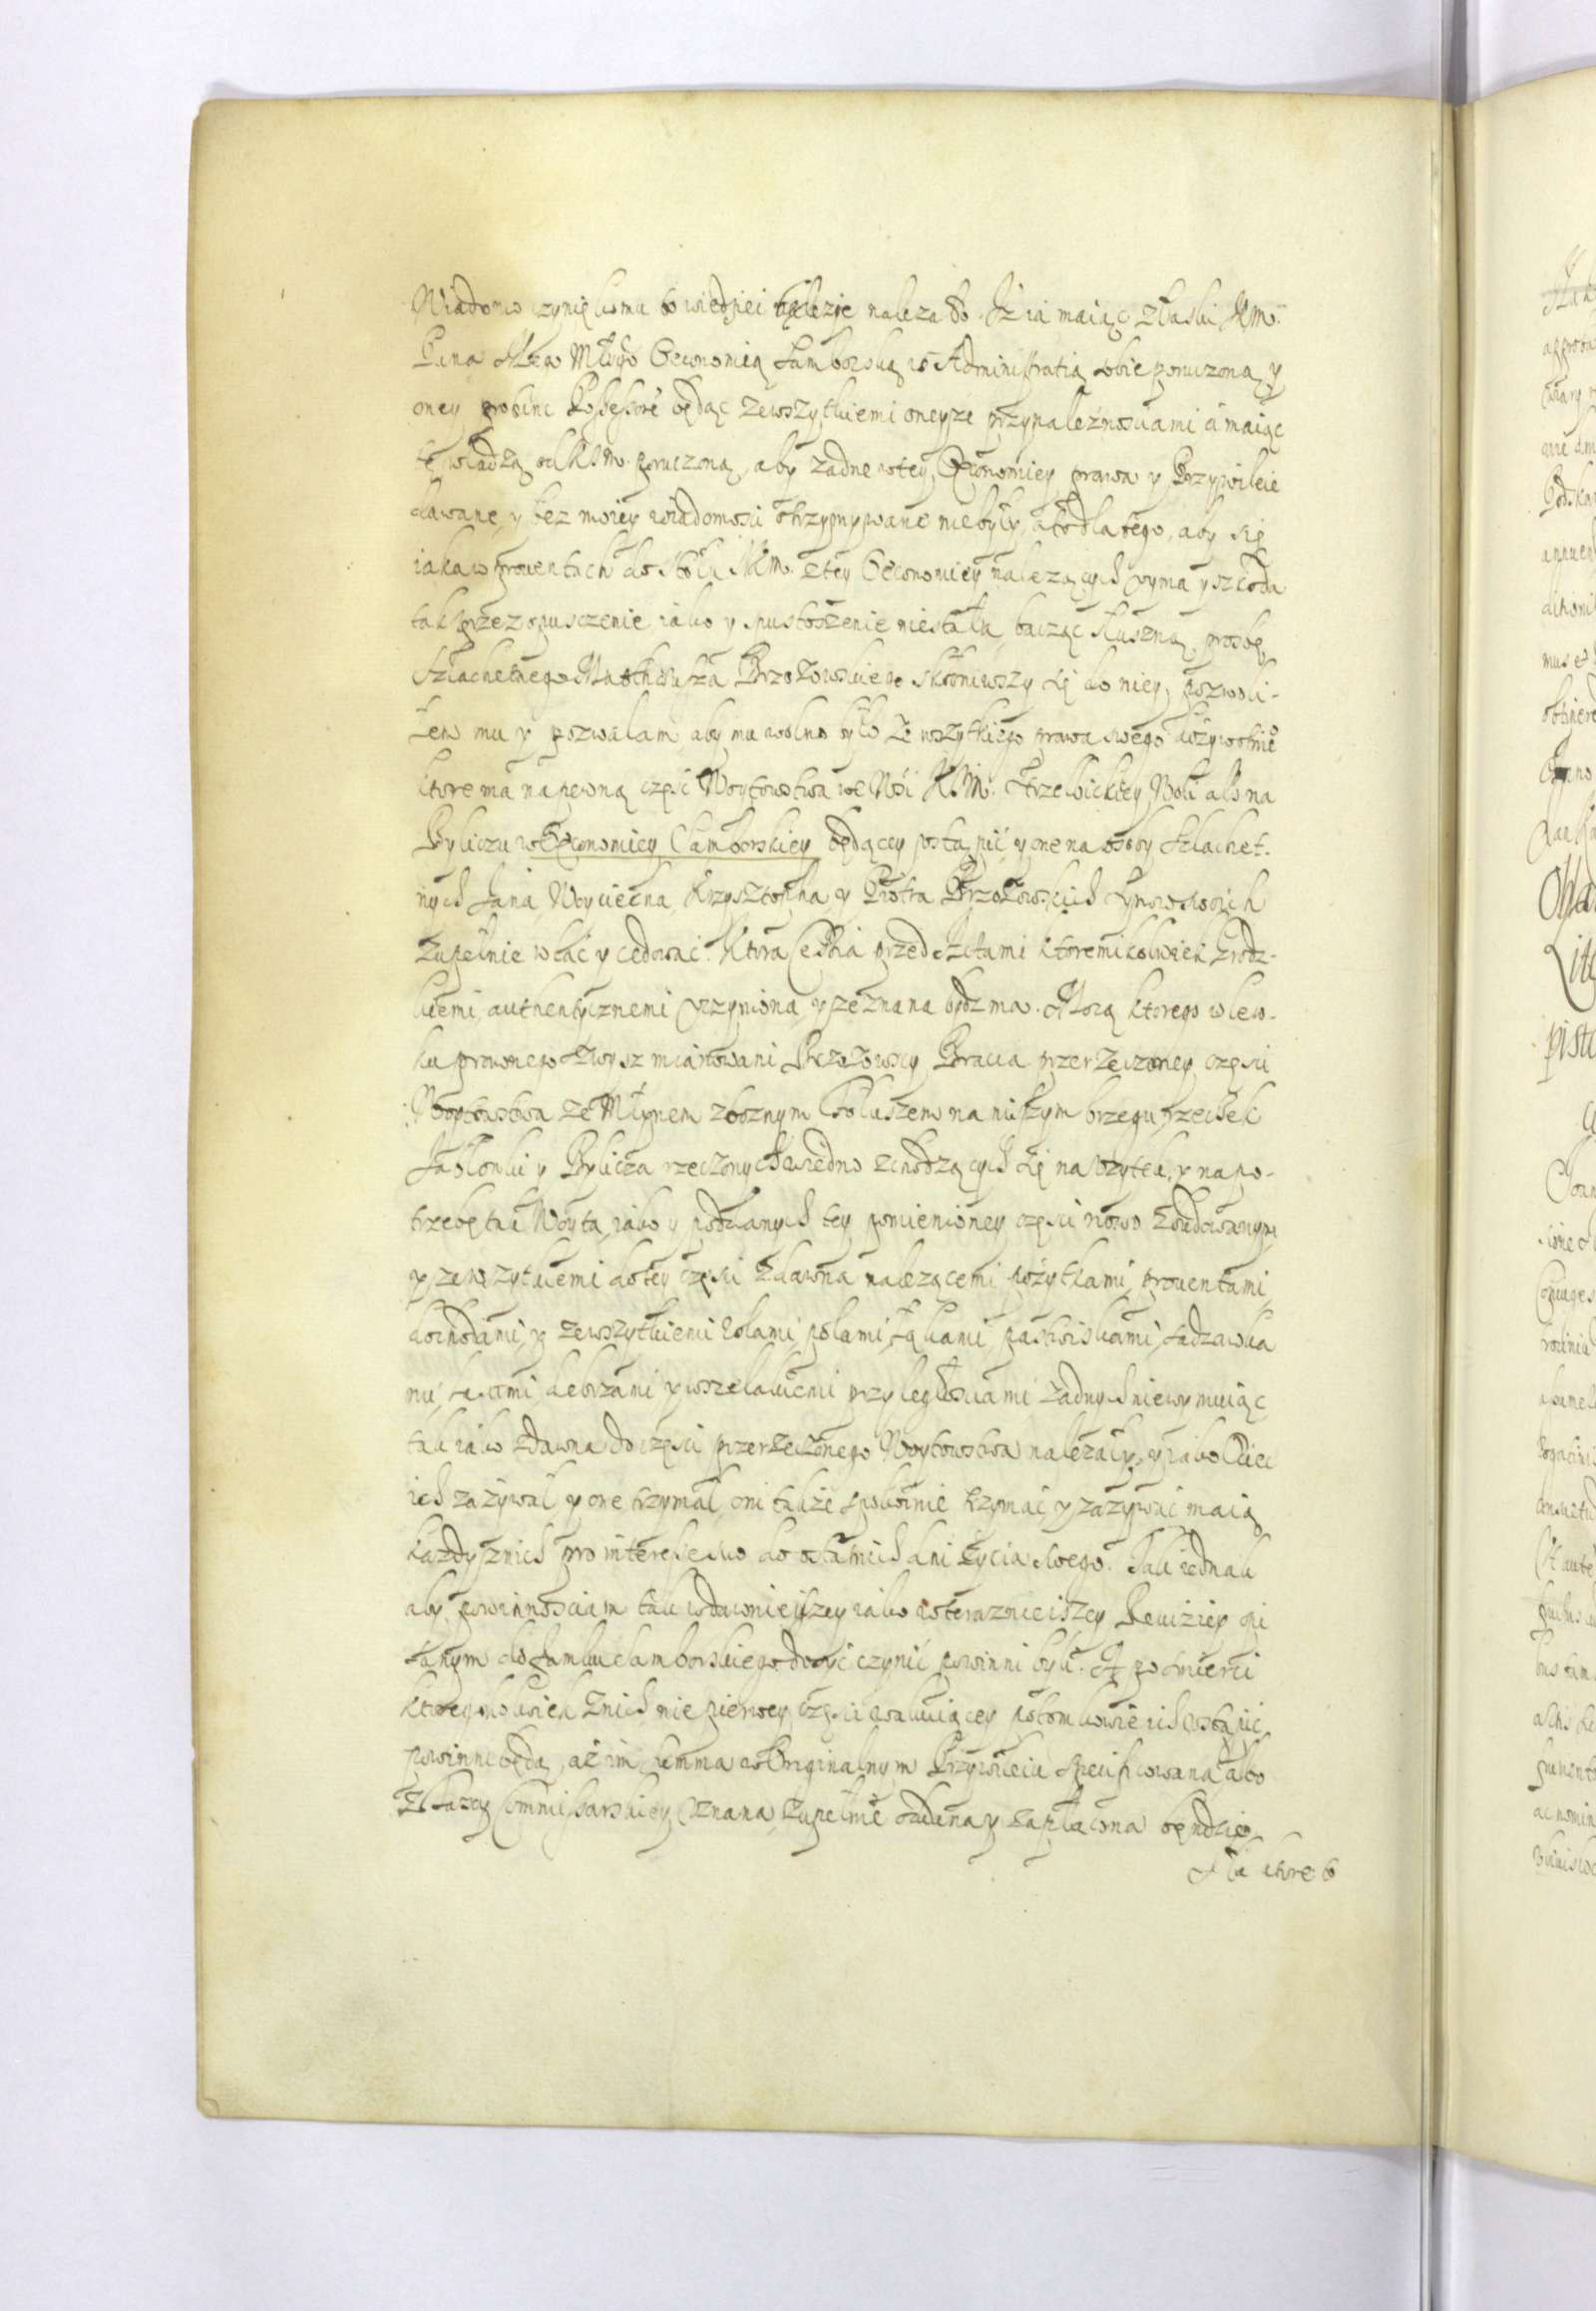 Wiadomo czynię komu to wiedziec należy należało. Iż ia maiąc złaski JKM.
Pana Mego Młgo Oeconomią Samborską w Administratią sobie poruczoną y
oney probinc Possessorē będąc zewszytkiemi oneyże przynależnosciami a maiąc
tę władzą od KJM. poruczoną, aby żadne w tey Oeconomiey prawa y Przywileie
dawane, y bez moiey wiadomosci otrzymywane niebyły, a to dlatego, aby się
iaka w prouentach do stołu JKM. z tey Oeconomiey należących vyma y szkoda
tak przez opusczenie iako y spustoszenie niestała, bacząc słuszną prosbę
Szlachetnego Matheusza Brzozowskiego skłoniwszy się do niey, pozwoli-
łem mu y pozwalam, aby mu wolno było ze wszytkiego prawa swego dożywotnie
ktore ma na pewną częsc Woytowstwa we Wsi KJM. Strzelbickiey Woli albo na
Byliczu w Oeconomiey Samborskiey będącey postąpić y one na osoby Szlachet-
nych Jana Woyciecha Krzysztopha y Piotra Brzozowskich Synow swoich
zupełnie wlać y cedować. Ktora Cessia przed Actami ktoremikolwiek Grodz-
kiemi authentycznemi vczyniona, y zeznana bydz ma. Mocą ktorego wlew-
ku prawnego zwysz mianowani Brzozowscy Bracia przerzeczoney częsci
Woytowstwa ze Młynem zbożnym y foluszem na niższym brzegu rzeczek
Jabłonki y Bylicza rzeczonych w iedno schodzących się na pożytek, y na po-
trzebę tak Woyta, iako y poddanych tey pomienioney częsci nowo zbudowanym
y ze wszytkiemi do tey częsci zdawna należącemi pożytkami, prouentami,
dochodami, y zewszytkiemi rolami, polami, łąkami, pastwiskami, sadzawka-
mi, lasami, debrzami y wszelakiemi przyległosciami żadnych niewymuiąc
tak iako zdawna do częsci przerzeczonego Woytowstwa należały, y iako Ociec
ich zażywał y one trzymał, oni także spokoinie trzymać y zażywać maią
każdy z nich pro interesse suo do ostatnich dni życia swego. Tak iednak
aby powinnosciam tak w dawnieyszey iako w teraznieiszey Reuiziey opi-
sanym do Zamku Samborskiego dosyć czynić powinni byli. A po smierci
ktoregokolwiek z nich nie pierwey częsci wakuiącey potomkowie ich vstąpić
powinni będą, aż im summa w Originalnym Przywileiu specifikowana albo
z łaski Commissarskiey vznana, zupełnie oddana y zapłacona będzie.
Na ktore to